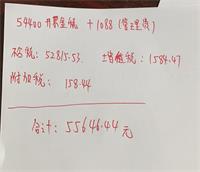 54400 开票金额 + 1088 (管理费)
价税: 52815.53 增值税: 1584.47
附加税: 158.44
合计: 55646.44 元